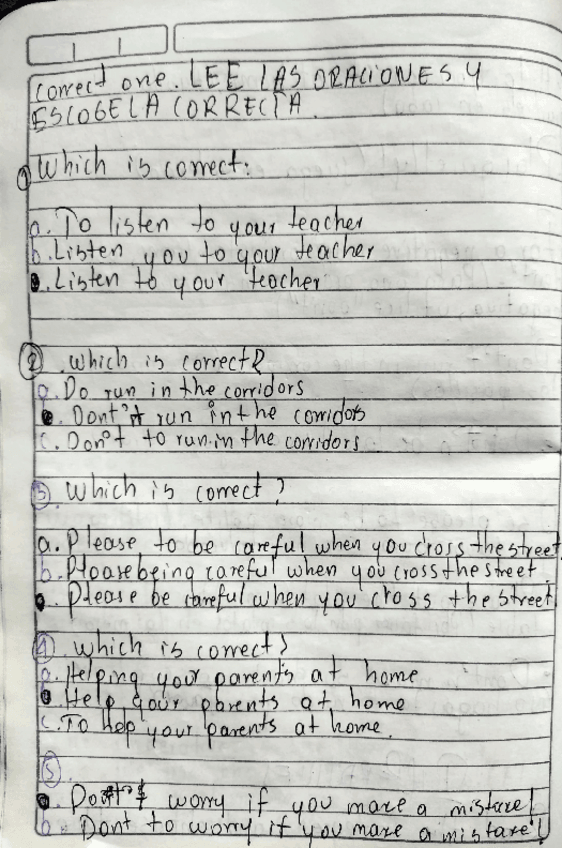 correct one. LEE LAS ORACIONES Y
ESCOGE LA CORRECTA.
1 Which is correct:
a. To listen to your teacher
b. Listen you to your teacher
. Listen to your teacher
2 . which is correct?
a. Do run in the corridors
. Dont't run in the corridors
c. Don't to run in the corridors
3 which is correct?
a. Please to be careful when you cross the street
b. Please being careful when you cross the street
. Please be careful when you cross the street
4. which is correct?
a. Helping your parents at home
. Help your parents at home
c. To Help your parents at home.
5.
. Don't worry if you make a mistake!
b. Dont to worry if you make a mistake!